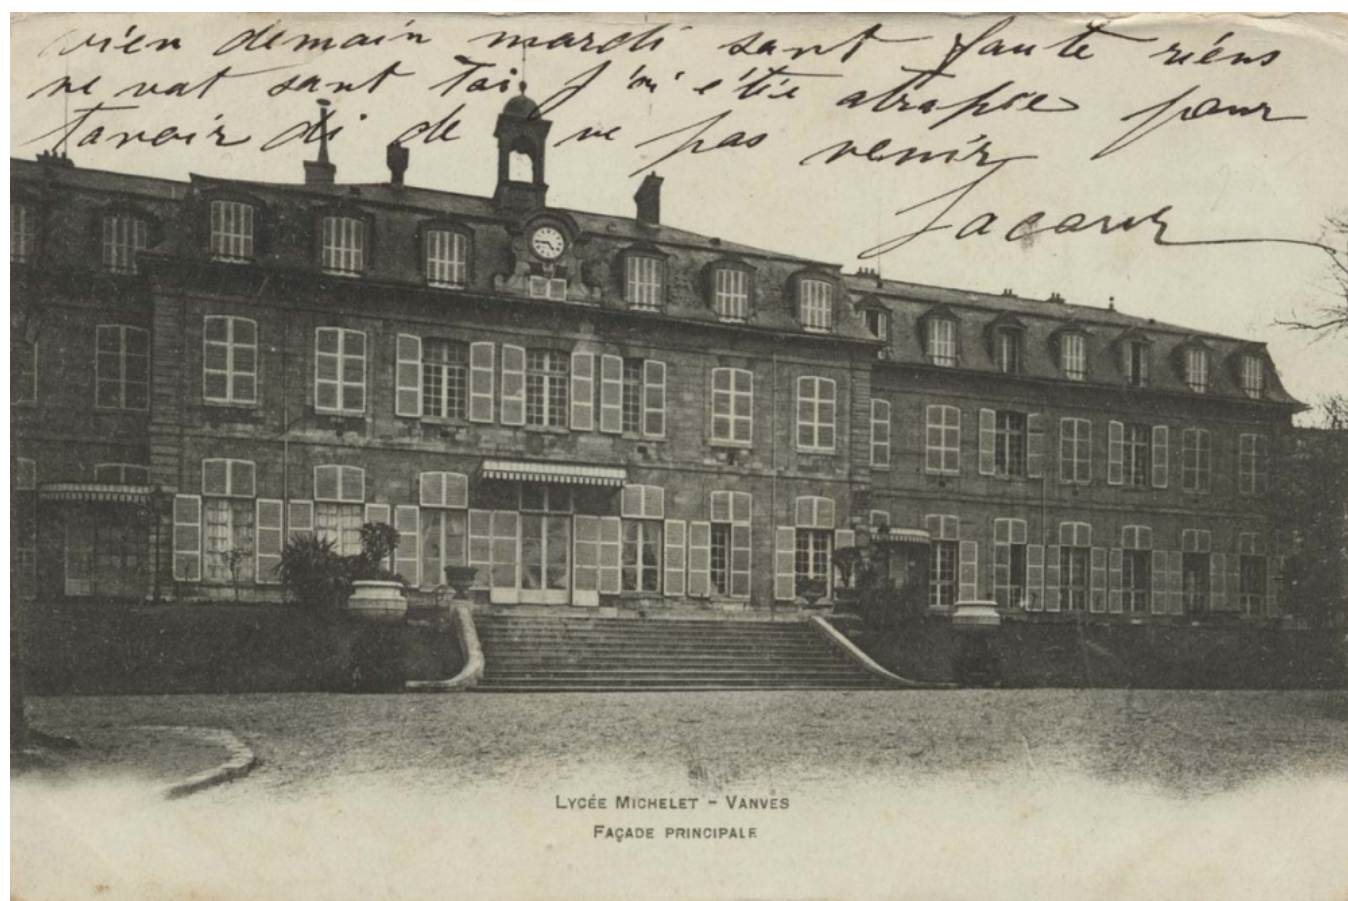 vien demain mardi sant faute riens
ne vat sant toi j'ai étée atrapée pour
tavoir di de ne pas venir
Lacour
LYCÉE MICHELET - VANVES
FAÇADE PRINCIPALE